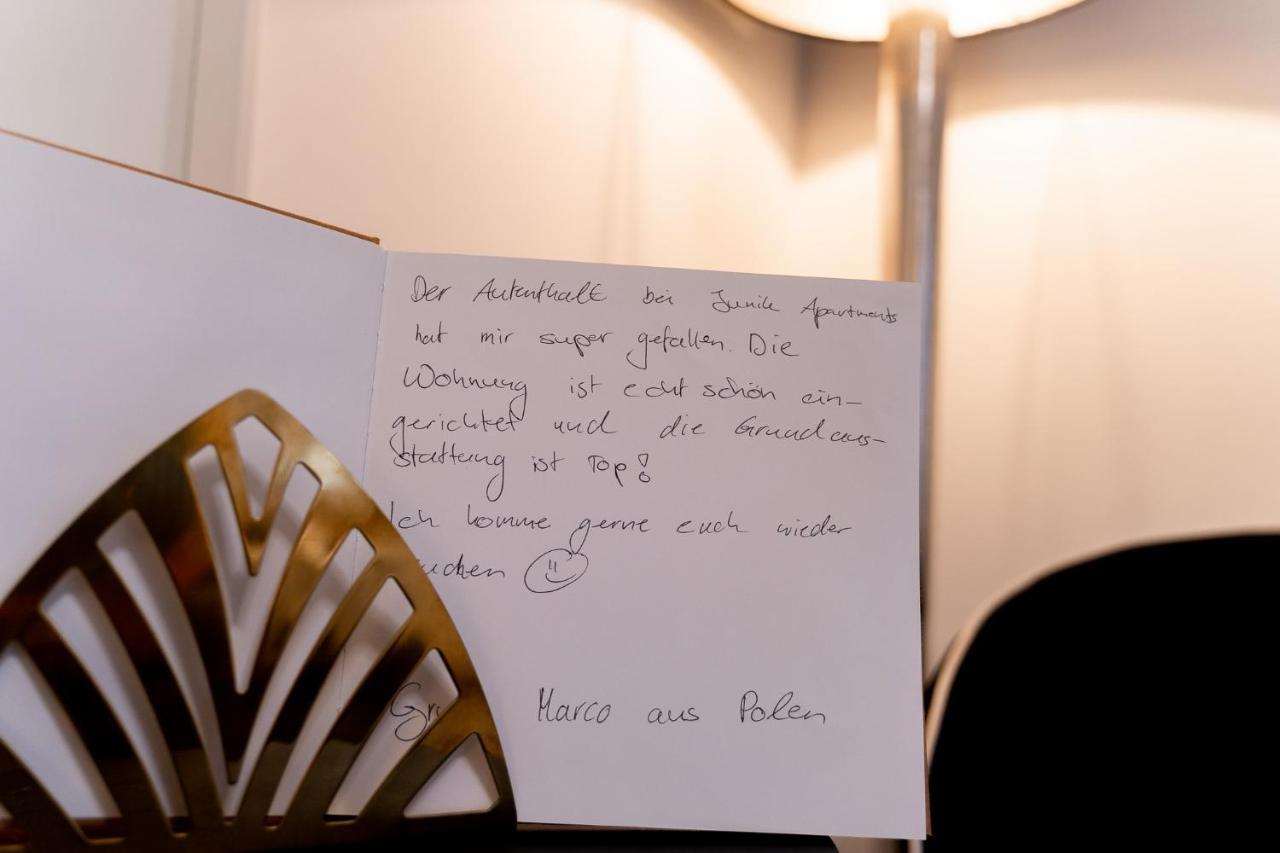 Der Aufenthalt bei Junik Apartments
hat mir super gefallen. Die
Wohnung ist echt schön ein-
gerichtet und die Grundaus-
stattung ist Top!
Ich komme gerne euch wieder
uchen
Marco aus Polen